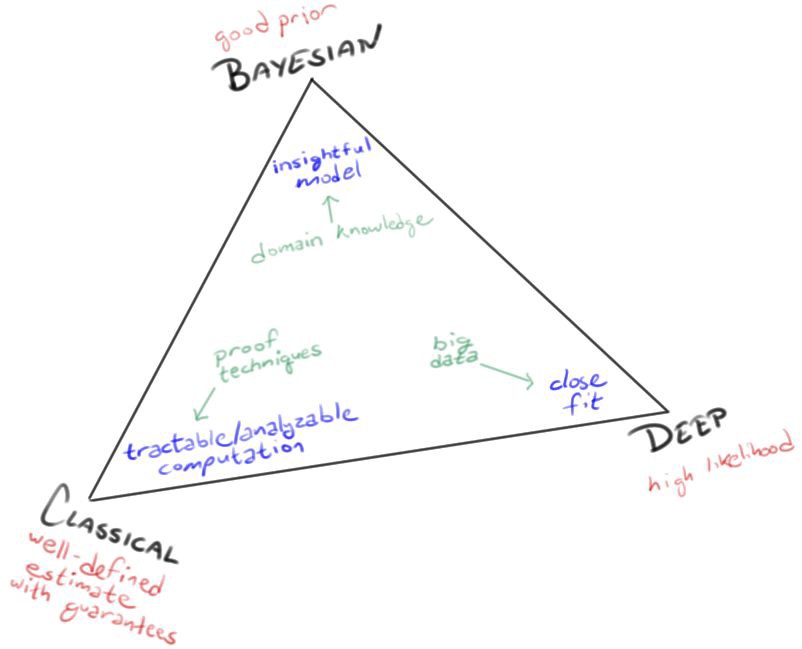 good prior
BAYESIAN
insightful
model
domain knowledge
proof
techniques
big
data
close
fit
tractable/analyzable
computation
DEEP
high likelihood
CLASSICAL
well-defined
estimate
with guarantees